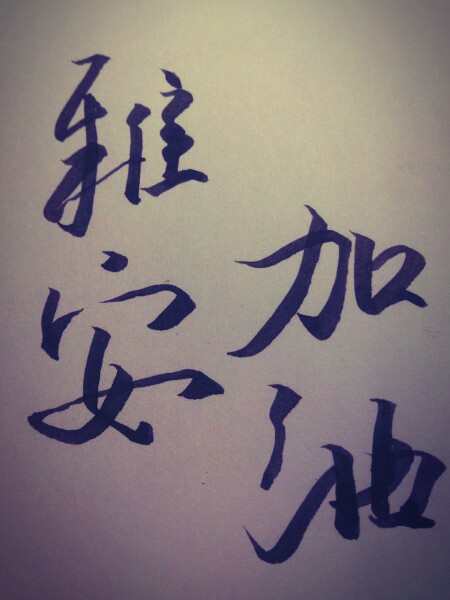 雅安
加油